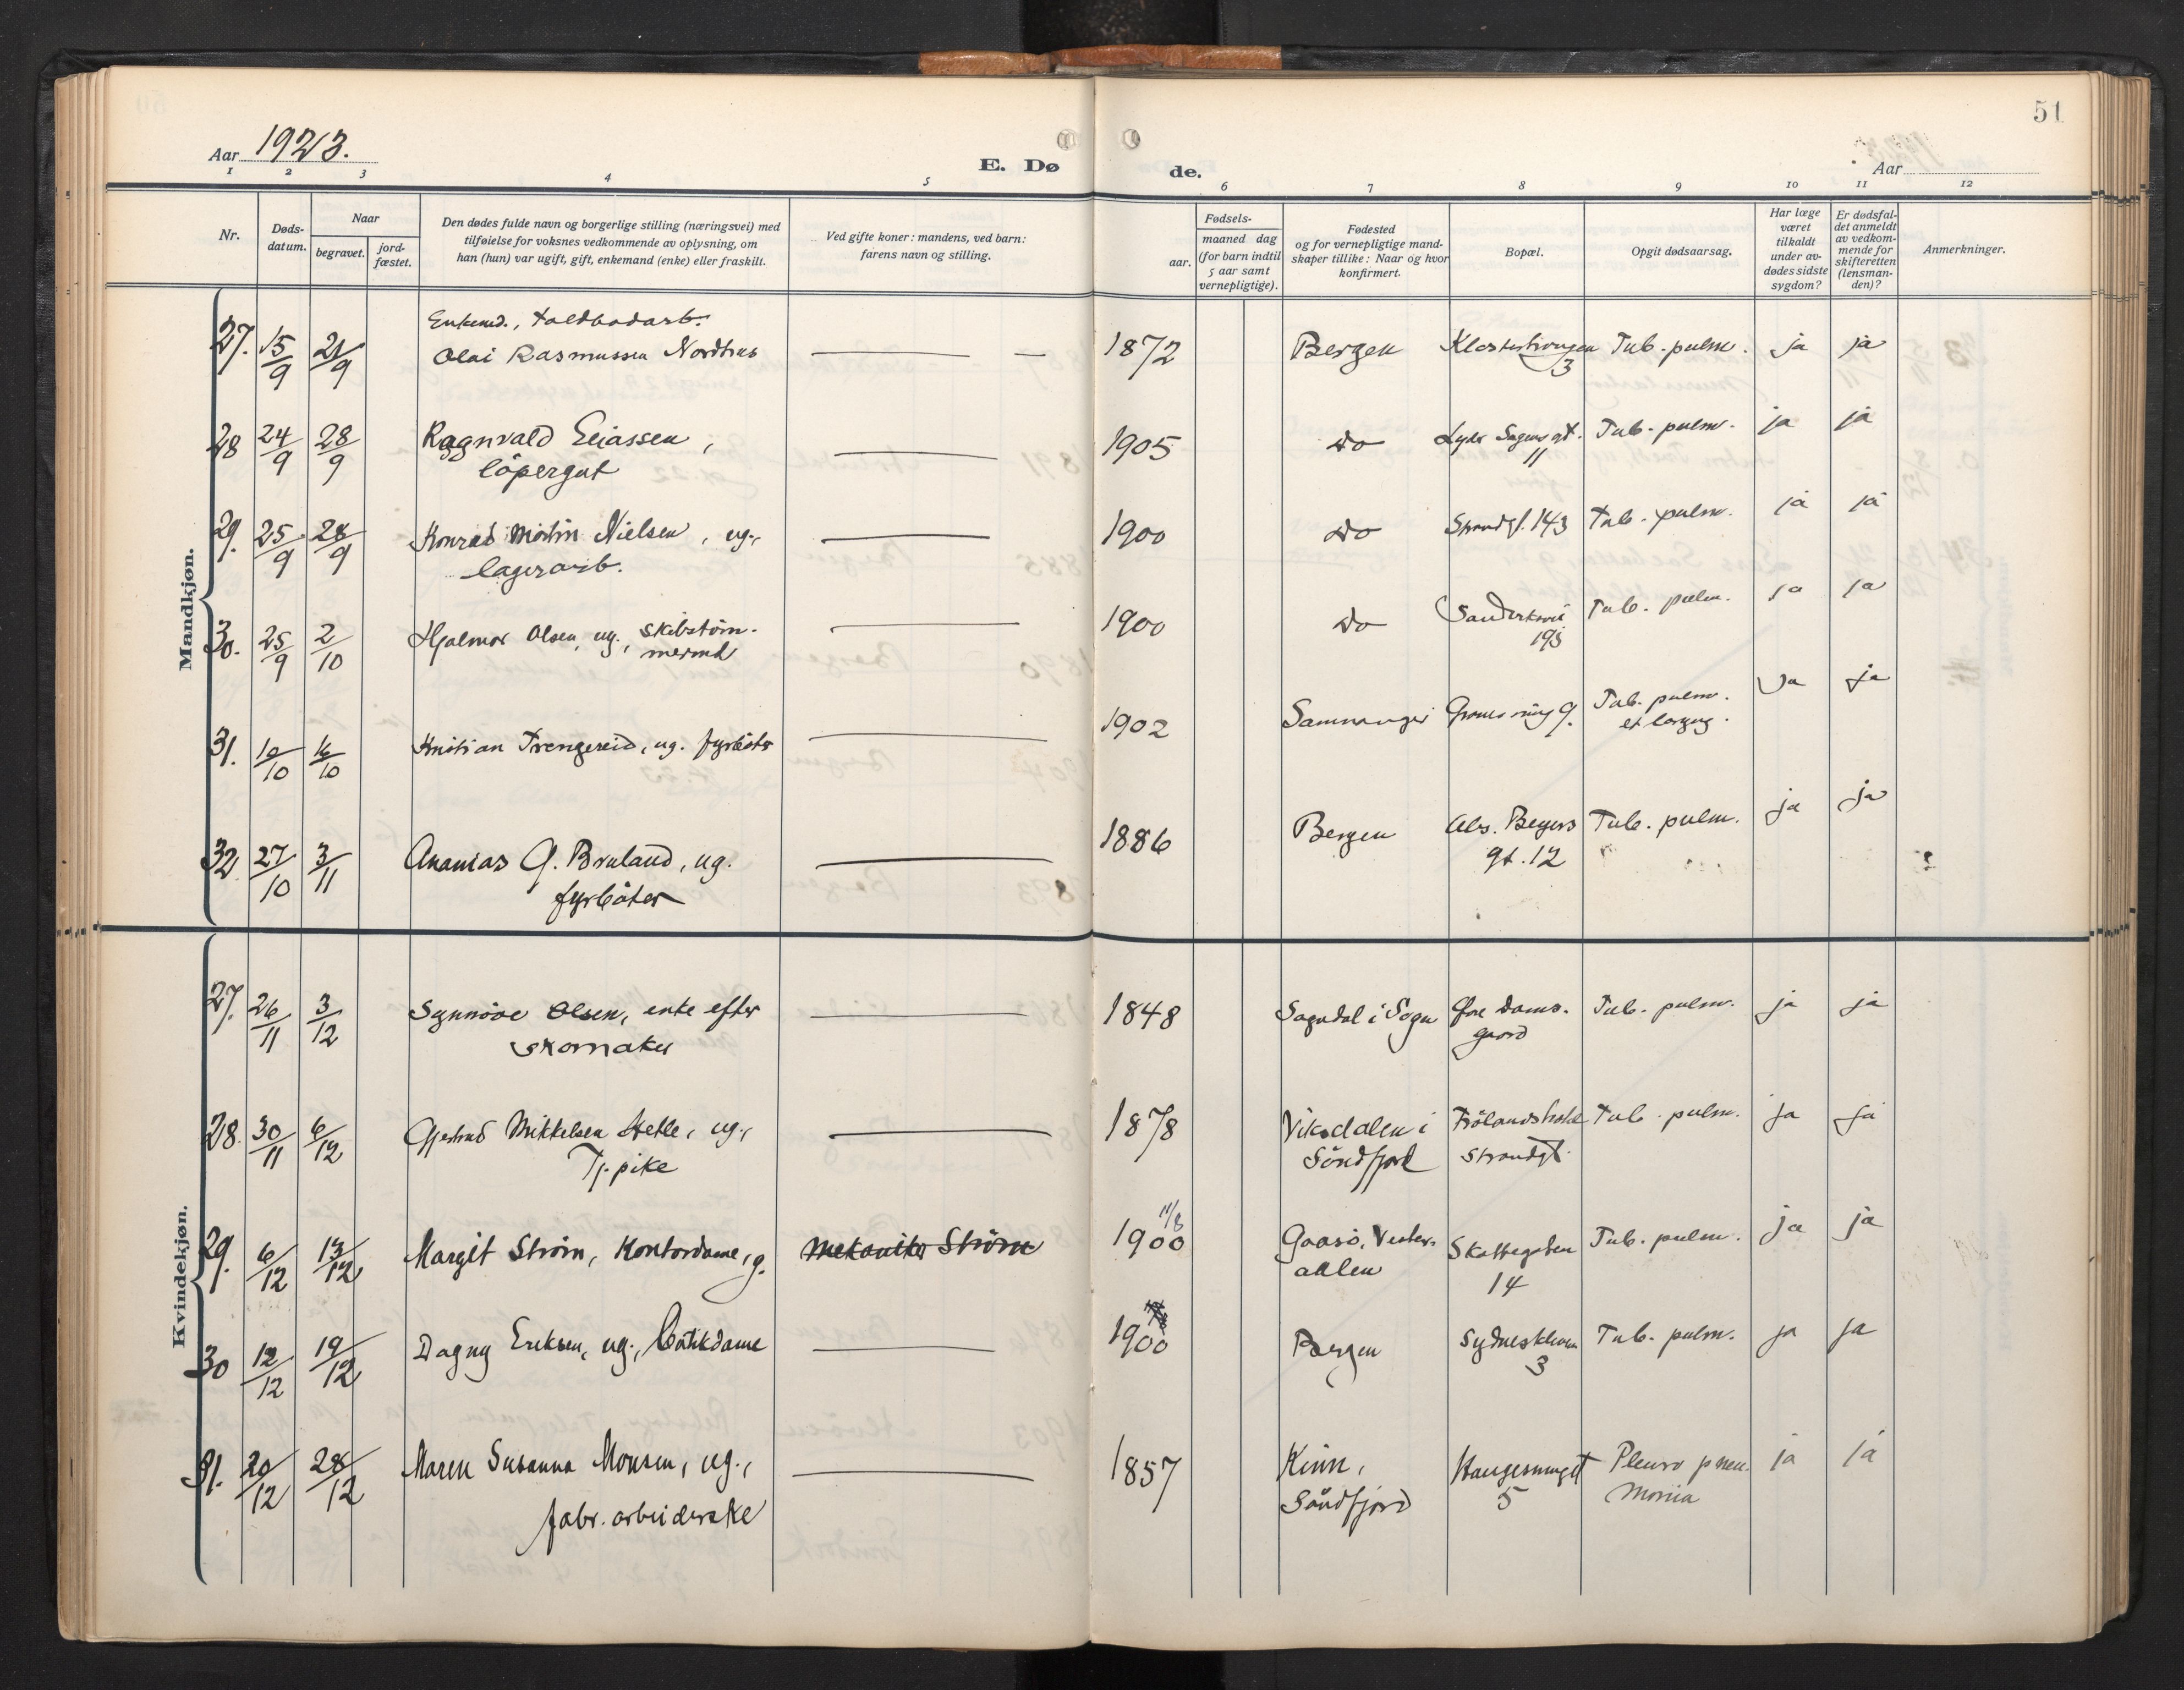 51
Aar 1923.
E. Dø
de.
Aar
1 2 3 4 5 6 7 8 9 10 11 12
Nr.
Døds-
datum.
Naar
begravet.
jord-
fæstet.
Den dødes fulde navn og borgerlige stilling (næringsvei) med
tilføielse for voksnes vedkommende av oplysning, om
han (hun) var ugift, gift, enkemand (enke) eller fraskilt.
Ved gifte koner: mandens, ved barn:
farens navn og stilling.
Fødsels-
aar.
maaned dag
(for barn indtil
5 aar samt
vernepligtige).
Fødested
og for vernepligtige mand-
skaper tillike: Naar og hvor
konfirmert.
Bopæl.
Opgit dødsaarsag.
Har læge
været
tilkaldt
under av-
dødes sidste
sygdom?
Er dødsfal-
det anmeldt
av vedkom-
mende for
skifteretten
(lensman-
den)?
Anmerkninger.
Mandkjøn.
27. 15/9 21/9 Enkemd., toldbodarb.
Olai Rasmussen Nordhus 1872 Bergen 3 Tub. pulm. ja ja
28 24/9 28/9 Ragnvald Eliassen,
löpergut 1905 do Lyder Sagens gt.
11 Tub. pulm. ja ja
29. 25/9 28/9 Konrad Martin Nielsen, ug.,
lagerarb. 1900 do Strandgt. 143 Tub. pulm. ja ja
30. 25/9 2/10 Hjalmar Olsen, ug., skibstöm-
mermd 1900 do Sandviksvei
193 Tub. pulm. ja ja
31. 10/10 16/10 Kristian Trengereid, ug. fyrböter 1902 Samnanger 9. Tub. pulm.
et laryng. ja ja
32 27/10 3/11 Ananias G. Bruland, ug.
fyrböter 1886 Bergen Abs. Beyers
gt. 12 Tub. pulm. ja ja
Kvindekjøn.
27. 26/11 3/12 Synnöve Olsen, enke efter
skomaker 1848 Sogndal i Sogn Övre Dams-
gaard Tub. pulm. ja ja
28. 30/11 6/12 Gjertrud Mikkelsen Hetle, ug.,
Tj. pike 1878 Viksdalen i
Söndfjord Strandgt. Tub. pulm. ja ja
29. 6/12 13/12 Margit Ström, Kontordame, g. Mekaniker Ström 11/8
1900 Gaasö, Vester-
aalen Skottegaten
14 Tub. pulm. ja ja
30 12/12 19/12 Dagny Eriksen, ug., Butikdame 1900 Bergen Sydneskleven
3 Tub. pulm. ja ja
31. 20/12 28/12 Maren Susanna Monsen, ug.,
fabr. arbeiderske 1857 Kinn,
Söndfjord Haugesmuget
5 Pleuro pneu-
monia ja ja